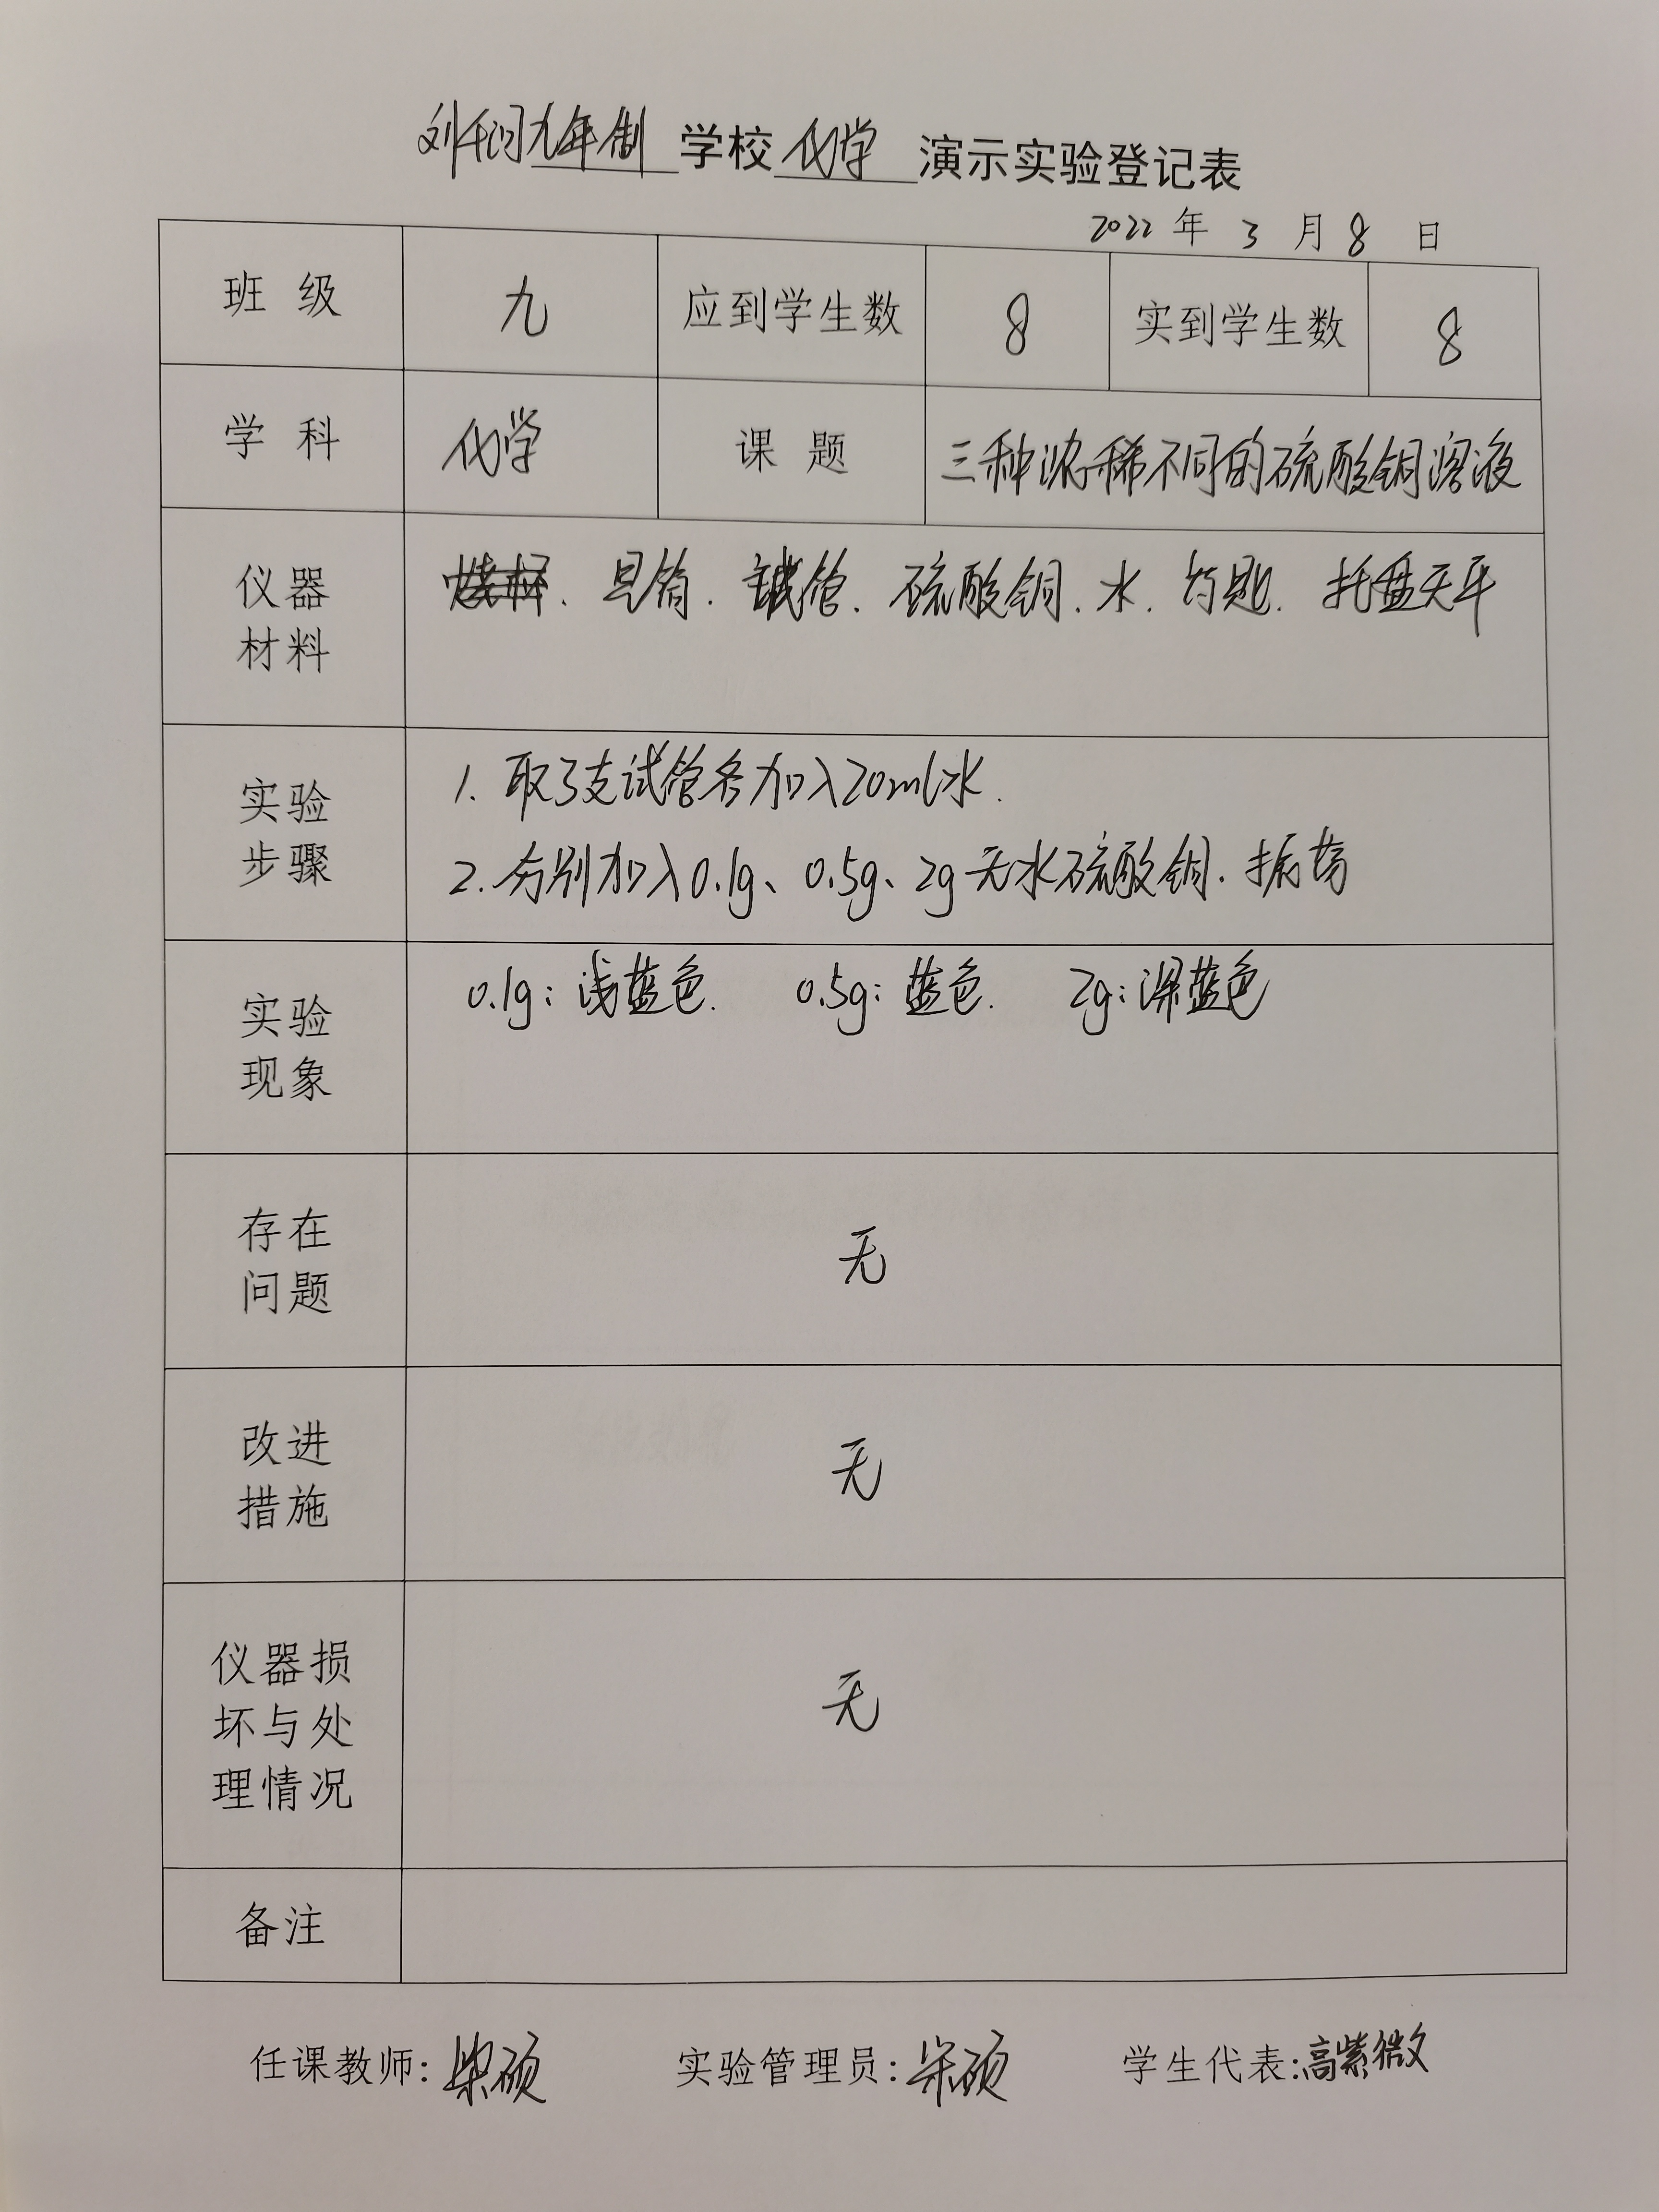 刘千门九年制 学校 化学 演示实验登记表
2022 年 3 月 8 日
班级 九 应到学生数 8 实到学生数 8
学科 化学 课题 三种浓稀不同的硫酸铜溶液
仪器材料 量筒、试管、硫酸铜、水、药匙、托盘天平
实验步骤 1. 取3支试管各加入20ml水.
2. 分别加入0.1g、0.5g、2g无水硫酸铜. 振荡
实验现象 0.1g: 浅蓝色. 0.5g: 蓝色. 2g: 深蓝色
存在问题 无
改进措施 无
仪器损坏与处理情况 无
备注
任课教师: 硕 实验管理员: 硕 学生代表: 高紫微